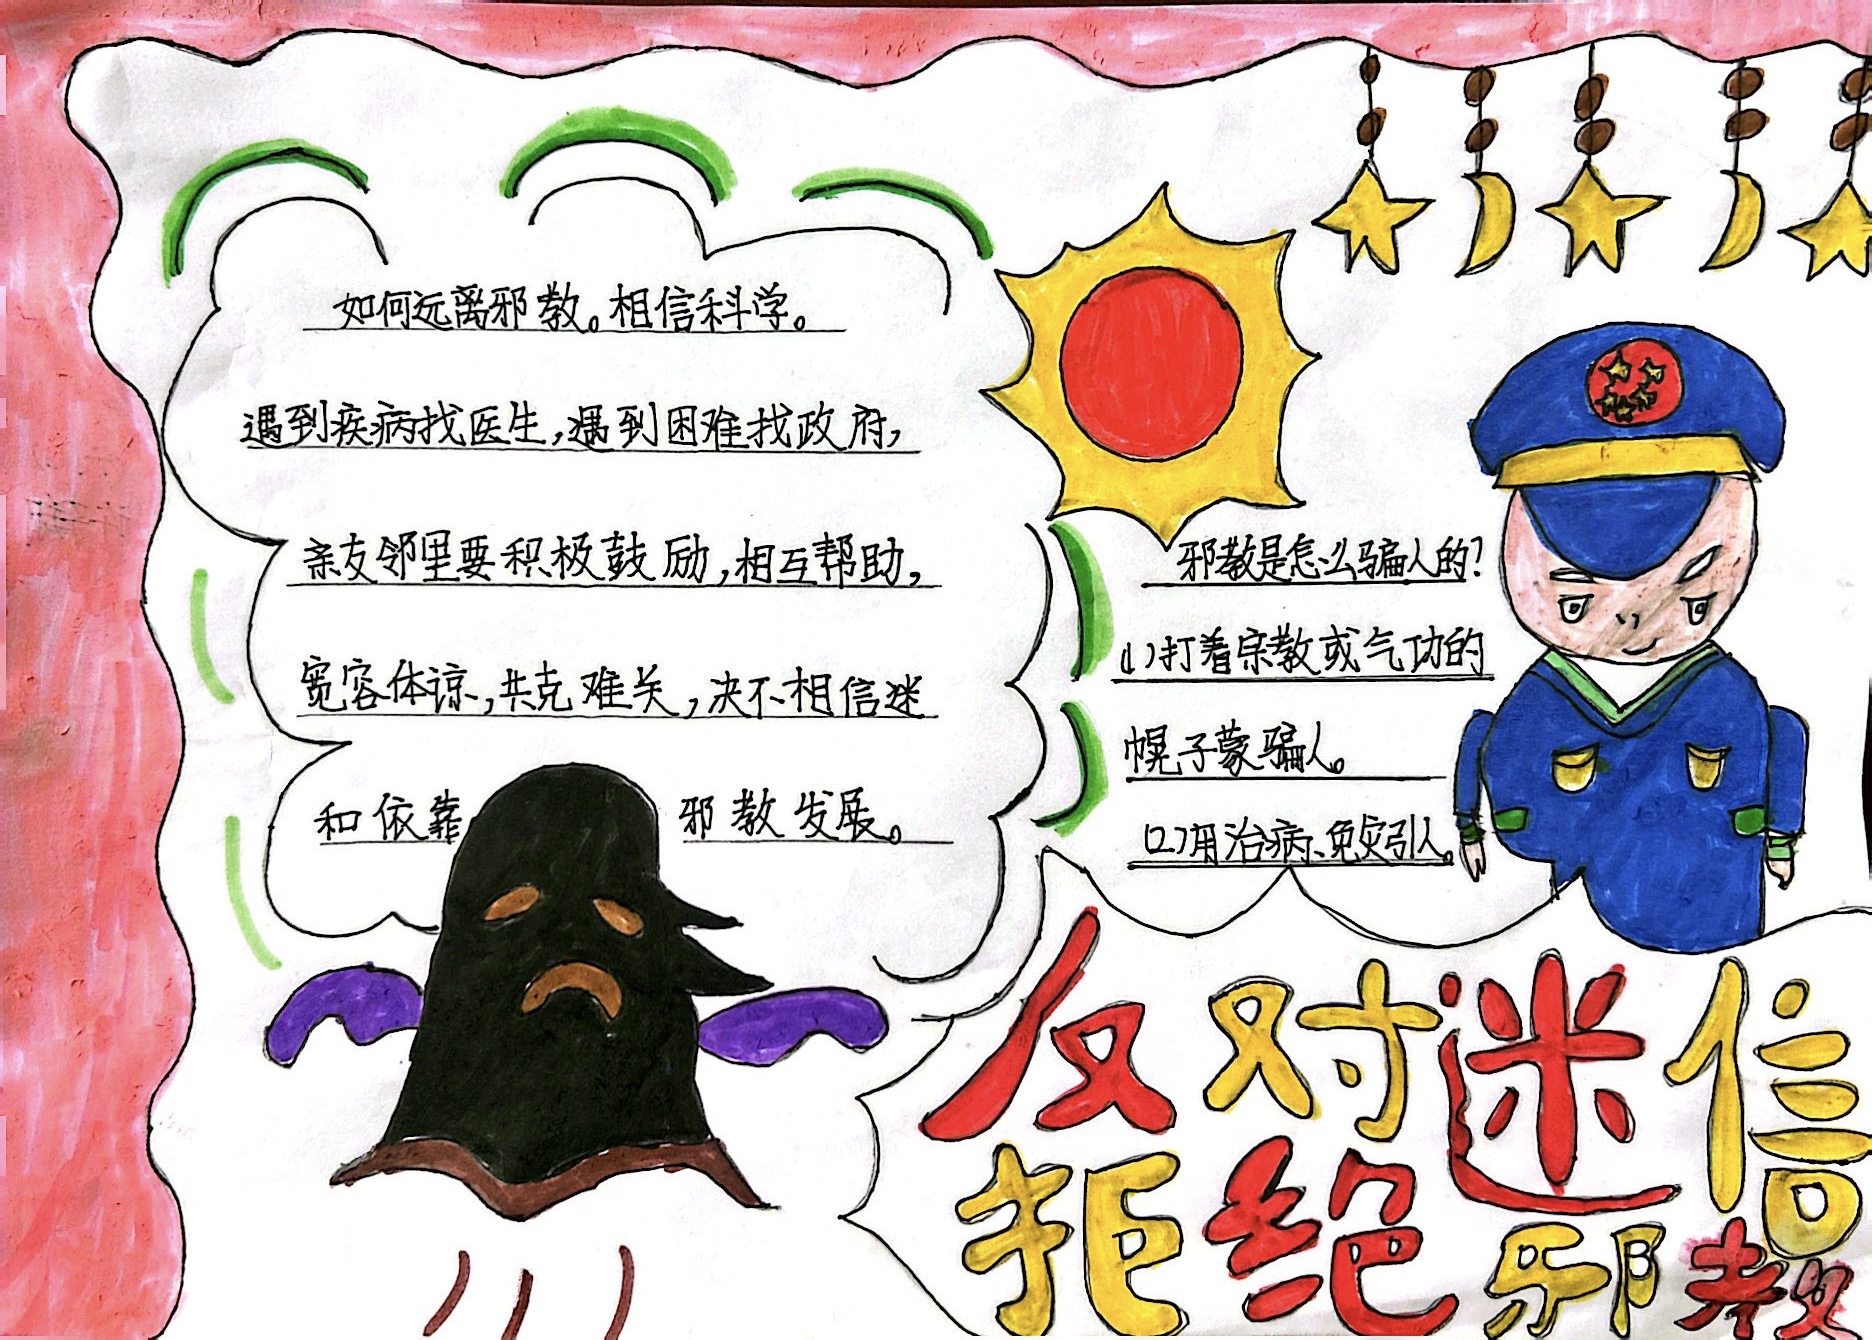 如何远离邪教。相信科学。
遇到疾病找医生,遇到困难找政府,
亲友邻里要积极鼓励,相互帮助,
宽容体谅,共克难关,决不相信迷
和依靠 邪教发展。
邪教是怎么骗人的?
(1)打着宗教或气功的
幌子蒙骗人。
(2)用治病、免灾引人。
反对迷信
拒绝邪教